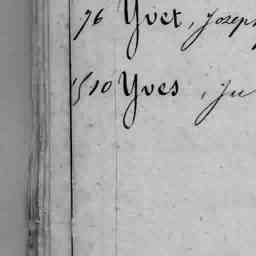 76 Yvet, Joseph
1510 Yves, Ju